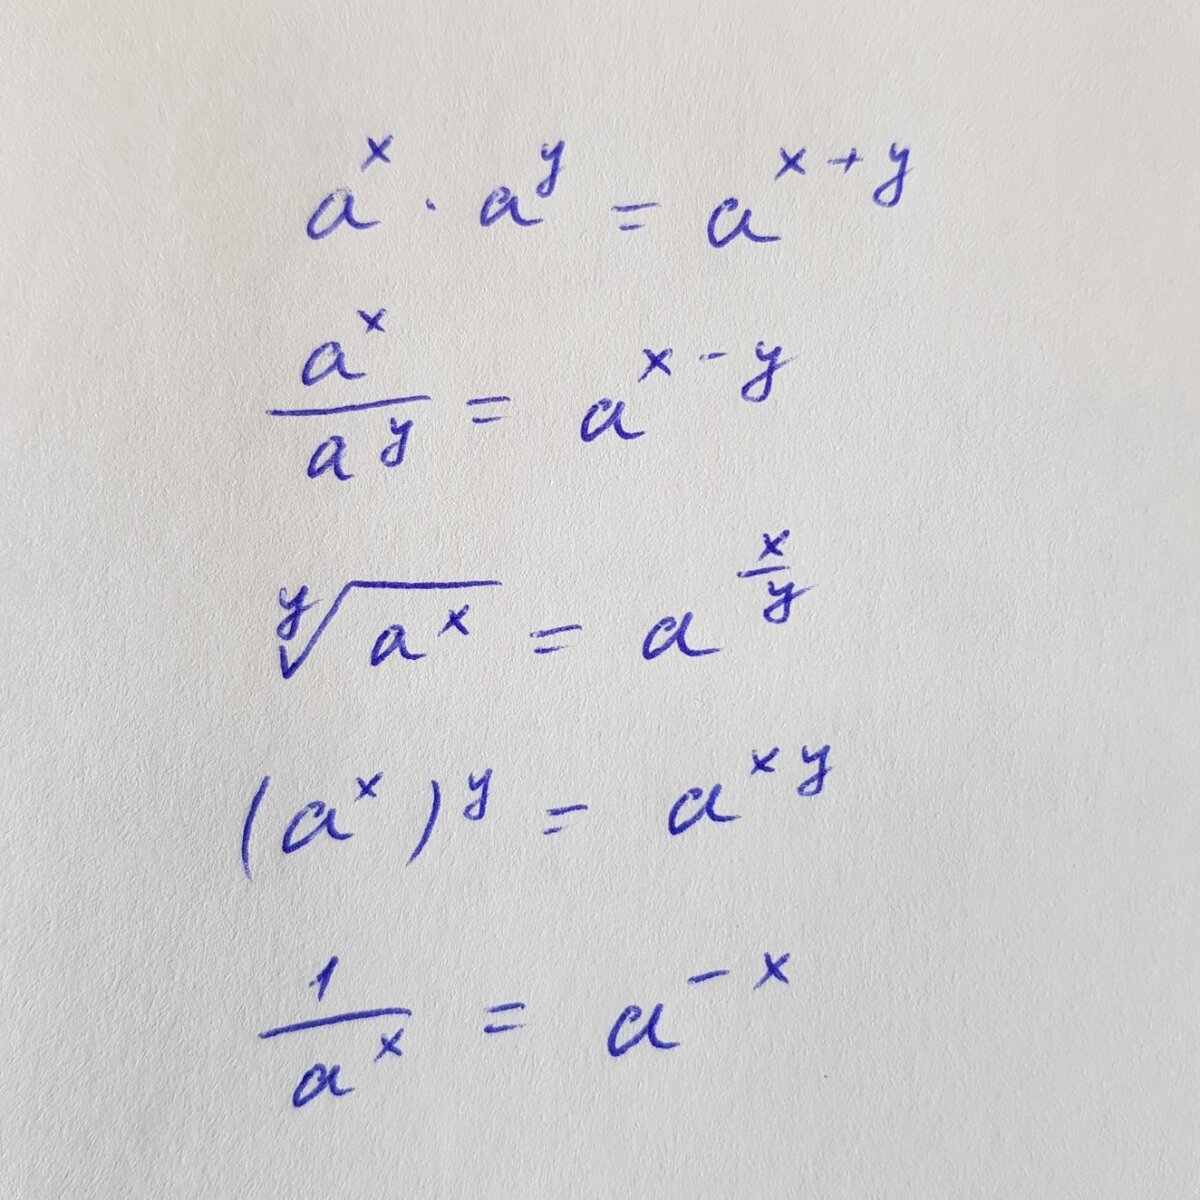 a^x · a^y = a^{x+y}
\frac{a^x}{a^y} = a^{x-y}
\sqrt[y]{a^x} = a^{\frac{x}{y}}
(a^x)^y = a^{xy}
\frac{1}{a^x} = a^{-x}